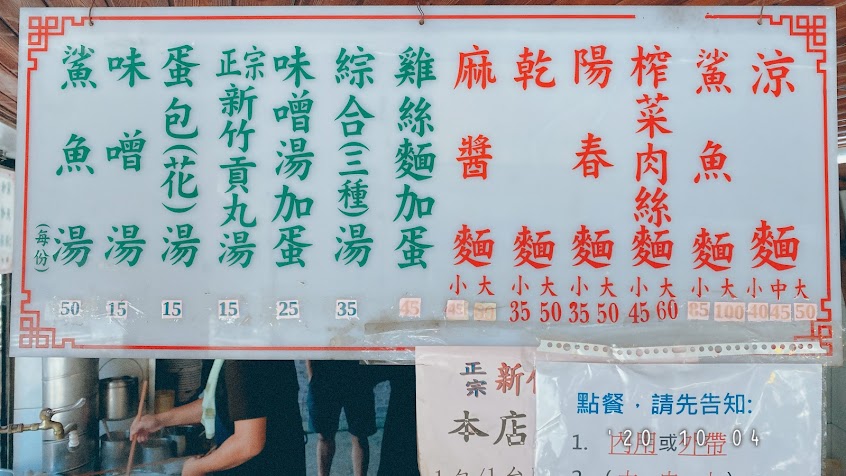 涼麵
小 中 大
40 45 50
鯊魚麵
小 大
85 100
榨菜肉絲麵
小 大
45 60
陽春麵
小 大
35 50
乾麵
小 大
35 50
麻醬麵
小 大
雞絲麵加蛋
45
綜合(三種)湯
35
味噌湯加蛋
25
正宗新竹貢丸湯
15
蛋包(花)湯
15
味噌湯
15
鯊魚湯
(每份)
50
正宗新
本店
點餐，請先告知:
1. 內用或外帶
'20 10 04